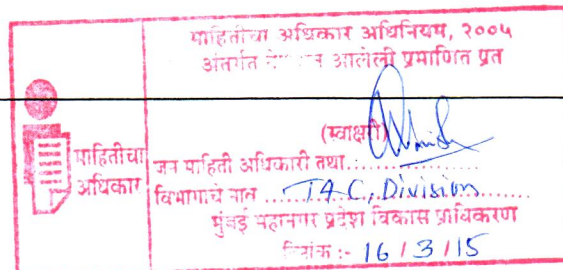 माहितीचा अधिकार अधिनियम, २००५
अंतर्गत देण्यात आलेली प्रमाणित प्रत
(स्वाक्षरी)
माहितीचा
अधिकार
जन माहिती अधिकारी तथा
विभागाचे नाव T&C, Division
मुंबई महानगर प्रदेश विकास प्राधिकरण
दिनांक :- 16/3/15